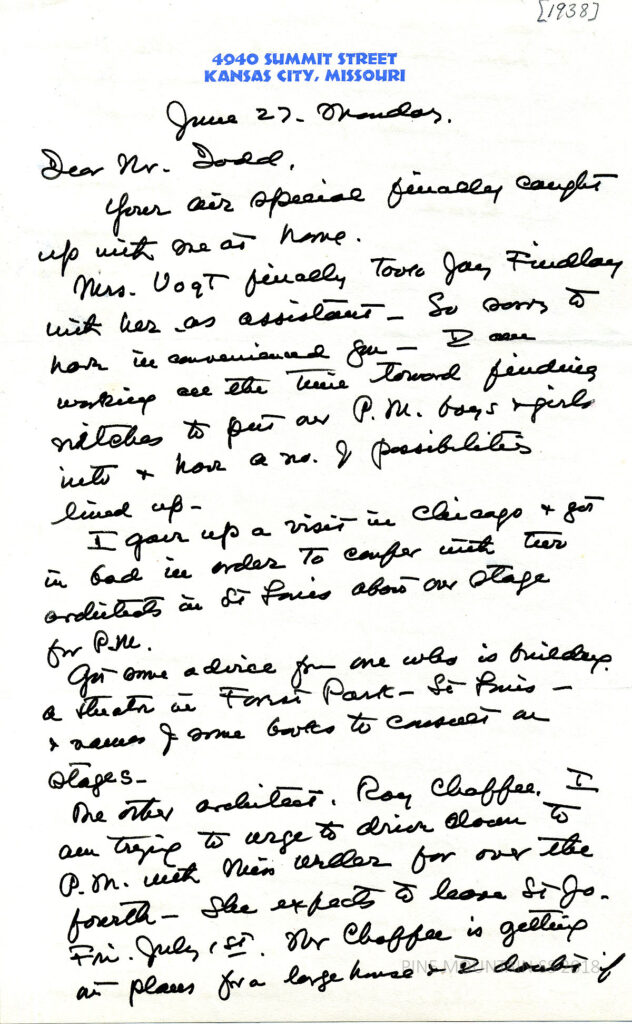 [1938]
4940 SUMMIT STREET
KANSAS CITY, MISSOURI
June 27. Monday.
Dear Mr. Dodd,
Your air special finally caught
up with me at home.
Mrs. Vogt finally took Jay Findlay
with her as assistant – So sorry to
have inconvenienced you – I am
working all the time toward finding
nitches to put our P.M. boys & girls
into & have a no. of possibilities
lined up –
I gave up a visit in Chicago & got
in bad in order to confer with two
architects in St Louis about our stage
for P.M.
Got some advice from one who is building
a theater in Forest Park – St Louis –
& names of some books to consult on
stages –
The other architect, Roy Chaffee, I
am trying to urge to drive down to
P.M. with Miss Weller for over the
fourth – She expects to leave St Jo.
Fri. July 1st. Mr Chaffee is getting
out plans for a large house & I doubt if
PINE MOUNTAIN SS 2018